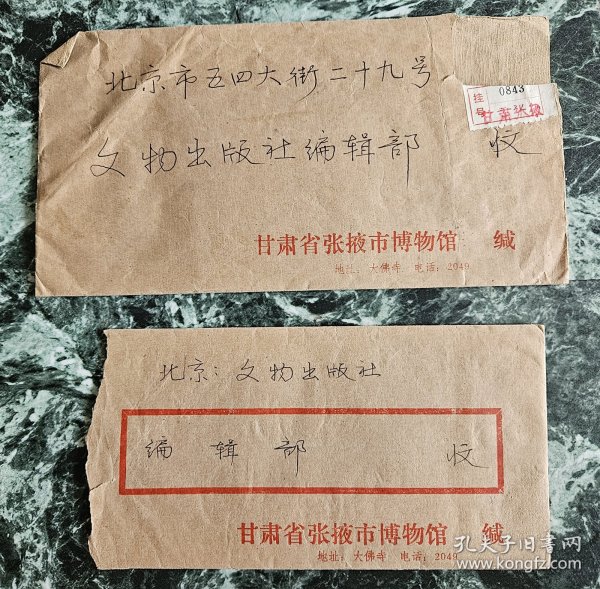 北京市五四大街二十九号
挂号 0843
甘肃张掖
文物出版社编辑部 收
甘肃省张掖市博物馆 缄
地址：大佛寺 电话：2049
北京：文物出版社
编辑部 收
甘肃省张掖市博物馆 缄
地址：大佛寺 电话：2049
孔夫子旧书网
www.kongfz.com